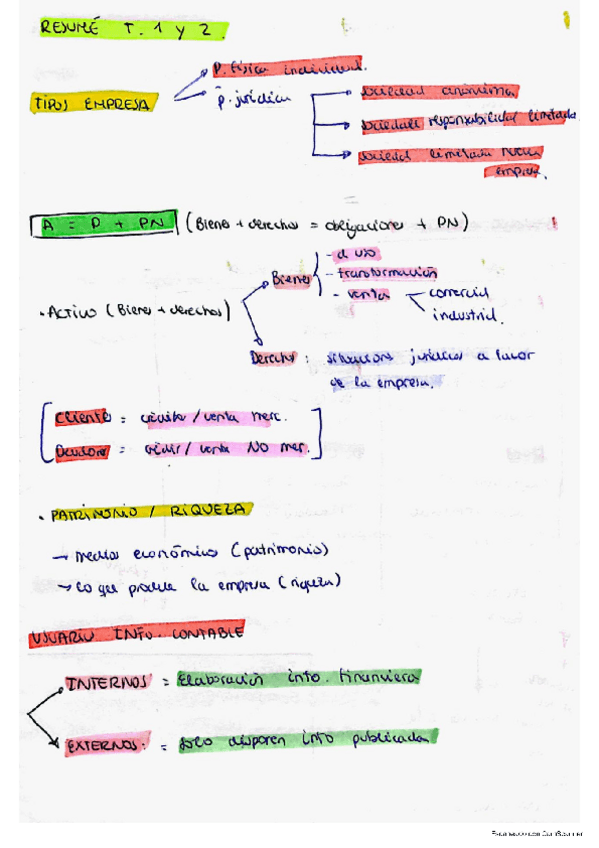 RESUMÉ T. 1 y 2.
P. física individual.
TIPOS EMPRESA
p. jurídica
sociedad anónima
sociedad responsabilidad limitada
sociedad limitada nueva
empresa.
A = P + PN (Bienes + derechos = obligaciones + PN)
- d uso
Bienes - transformación
- ventas comercial
industrial.
· Activo (Bienes + derechos)
Derechos : situaciones jurídicas a favor
de la empresa.
Clientes = crédito / venta merc.
Deudores = crédito / venta NO mer.
· PATRIMONIO / RIQUEZA
→ medios económicos (patrimonio)
→ lo que produce la empresa (riqueza)
USUARIO INFO. CONTABLE
INTERNOS = Elaboración info. financiera
EXTERNOS. = solo disponen info publicada
Escaneado con CamScanner